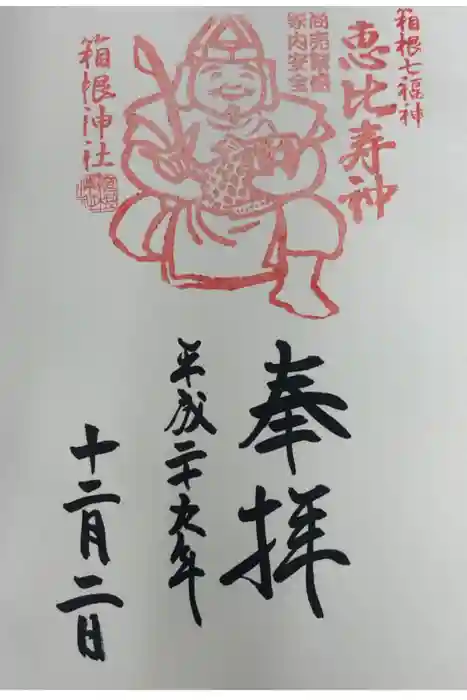 箱根七福神
恵比寿神
商売繁盛
家内安全
箱根神社
奉拝
平成二十九年
十二月二日